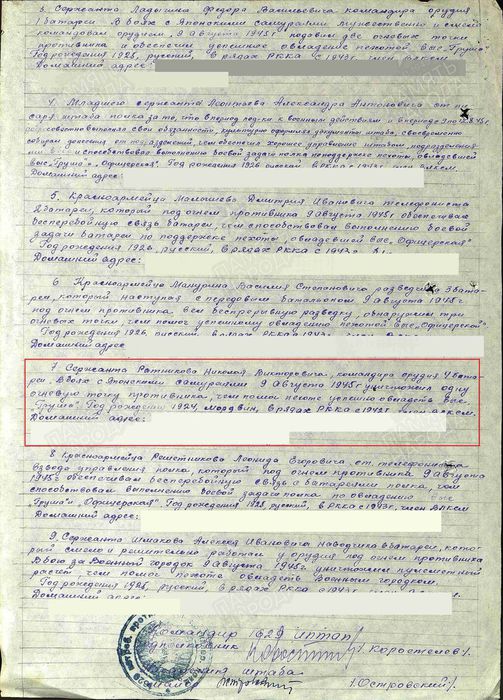 3. Сержанта Ладогина Федора Васильевича командира орудия
1 батареи. В боях с Японскими самураями мужественно и смело
командовал орудием, 9 августа 1945 г подавил две огневых точки
противника и обеспечил успешное овладение пехотой выс. "Груша"
Год рождения 1925, русский, в рядах РККА с 1943 г. член ВЛКСМ.
Домашний адрес:
4. Младшего сержанта Леонтьева Александра Антоновича ст. пи-
саря штаба полка за то, что в период подготовки к военным действиям и в период
добросовестно выполнял свои обязанности, культурно оформлял документы штаба, своевременно
собирал донесения от подразделений, чем обеспечил хорошее управление штабом, подразделения-
ми и способствовал выполнению боевой задачи полка по поддержке пехоты, овладевшей
выс. "Груша" и "Офицерская". Год рождения 1926, русский, в РККА с
Домашний адрес:
5. Красноармейца Малышева Дмитрия Ивановича телефониста
батареи, который под огнем противника 9 августа 1945 г обеспечивал
бесперебойную связь батареи, чем способствовал выполнению боевой
задачи батареи по поддержке пехоты, овладевшей выс. "Офицерская"
Год рождения 1926, русский, в рядах РККА с
Домашний адрес:
6. Красноармейца Манурина Василия Степановича разведчика бата-
реи, который наступая с передовым батальоном 9 августа 1945 г.
под огнем противника вел беспрерывную разведку, обнаружил три
огневых точки, чем помог успешному овладению пехотой выс. "Офицерской".
Год рождения 1926, русский, в рядах РККА с
Домашний адрес
7. Сержанта Ратникова Николая Викторовича, командира орудия 4 бата-
реи. В боях с Японскими самураями 9 августа 1945 г уничтожил одну
огневую точку противника, чем помог пехоте успешно овладеть выс.
"Груша". Год рождения 1924, мордвин, в рядах РККА с 1942 г. член ВЛКСМ.
Домашний адрес:
8. Красноармейца Решетникова Леонида Егоровича, ст. телефониста
взвода управления полка, который под огнем противника 9 августа
1945 г обеспечивал бесперебойную связь с батареями полка, чем
способствовал выполнению боевой задачи полка по овладению выс
"Груша" и "Офицерская". Год рождения 1925 русский, в РККА с 1943 г. член ВЛКСМ
Домашний адрес:
9. Сержанта Шмакова Алексея Ивановича наводчика батареи, кото-
рый смело и решительно работал у орудия под огнем противника
В бою за Военный городок 9 августа 1945 г. уничтожил пулеметный
расчет чем помог пехоте овладеть Военным городком.
Год рождения 1925, русский, в рядах РККА с
Домашний адрес:
Командир 1629 ИПТАП
подполковник /Коростелев/.
штаба
/.Островский/.